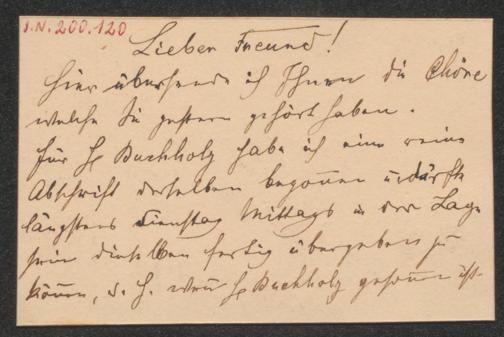 I.N. 200.120
Lieber Freund!
Hier übersende ich Ihnen die Chöre
welche Sie gestern gehört haben.
Für H Buchholz habe ich eine reine
Abschrift derselben begonnen u. dürfte
längstens Dienstag Mittags in der Lage
sein dieselben fertig übergeben zu
können, d. h. wenn H Buchholz gesonnen ist